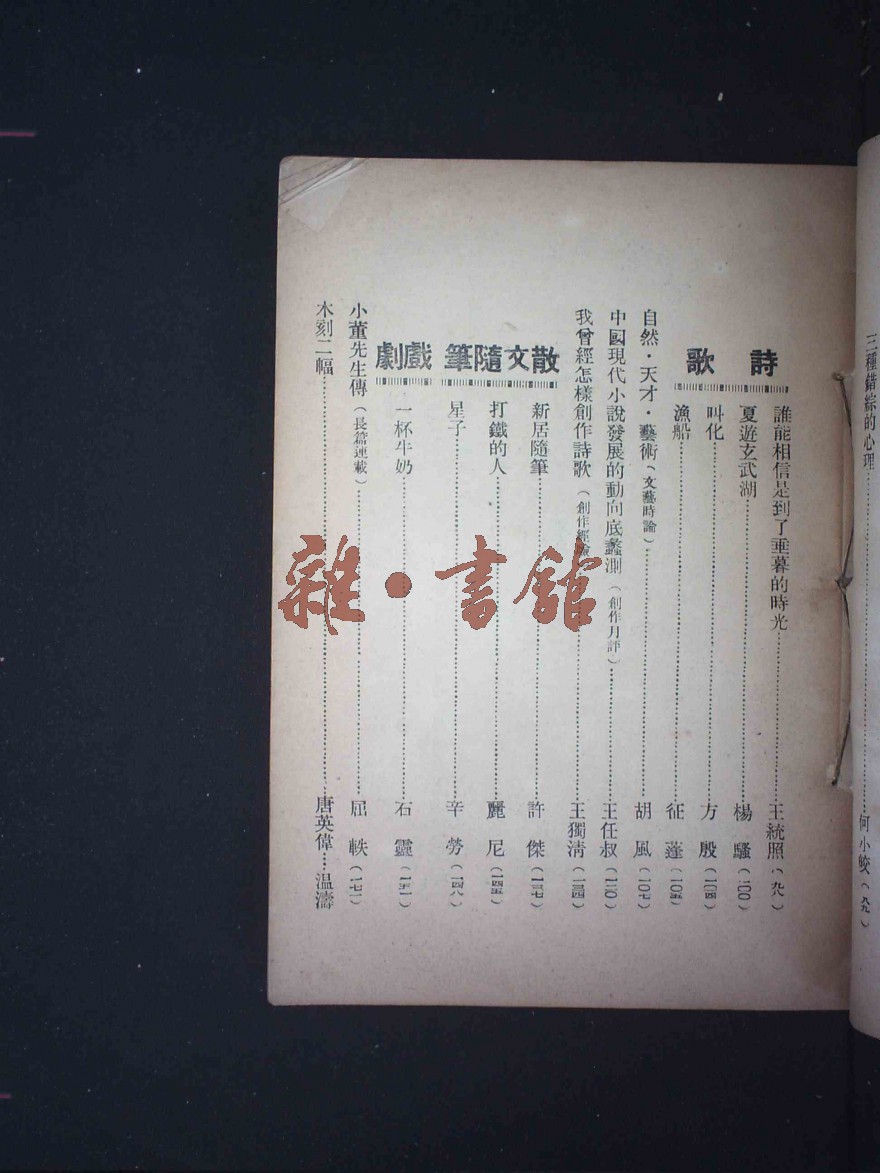 三種錯綜的心理……何小蛟（八九）
詩 歌
誰能相信是到了垂暮的時光……王統照（九八）
夏遊玄武湖……楊 騷（一〇〇）
叫化……方 殷（一〇四）
漁船……征 蓬（一〇五）
自然・天才・藝術（文藝時論）……胡 風（一〇七）
中國現代小說發展的動向底蠡測（創作月評）……王任叔（一二〇）
我曾經怎樣創作詩歌（創作經驗）……王獨清（一三四）
散文隨筆
新居隨筆……許 傑（一三七）
打鐵的人……麗 尼（一四五）
星子……辛 勞（一四八）
戲劇
一杯牛奶……石 靈（一五一）
小董先生傳（長篇連載）……屈 軼（一七一）
木刻二幅……唐英偉…温濤
雜・書館